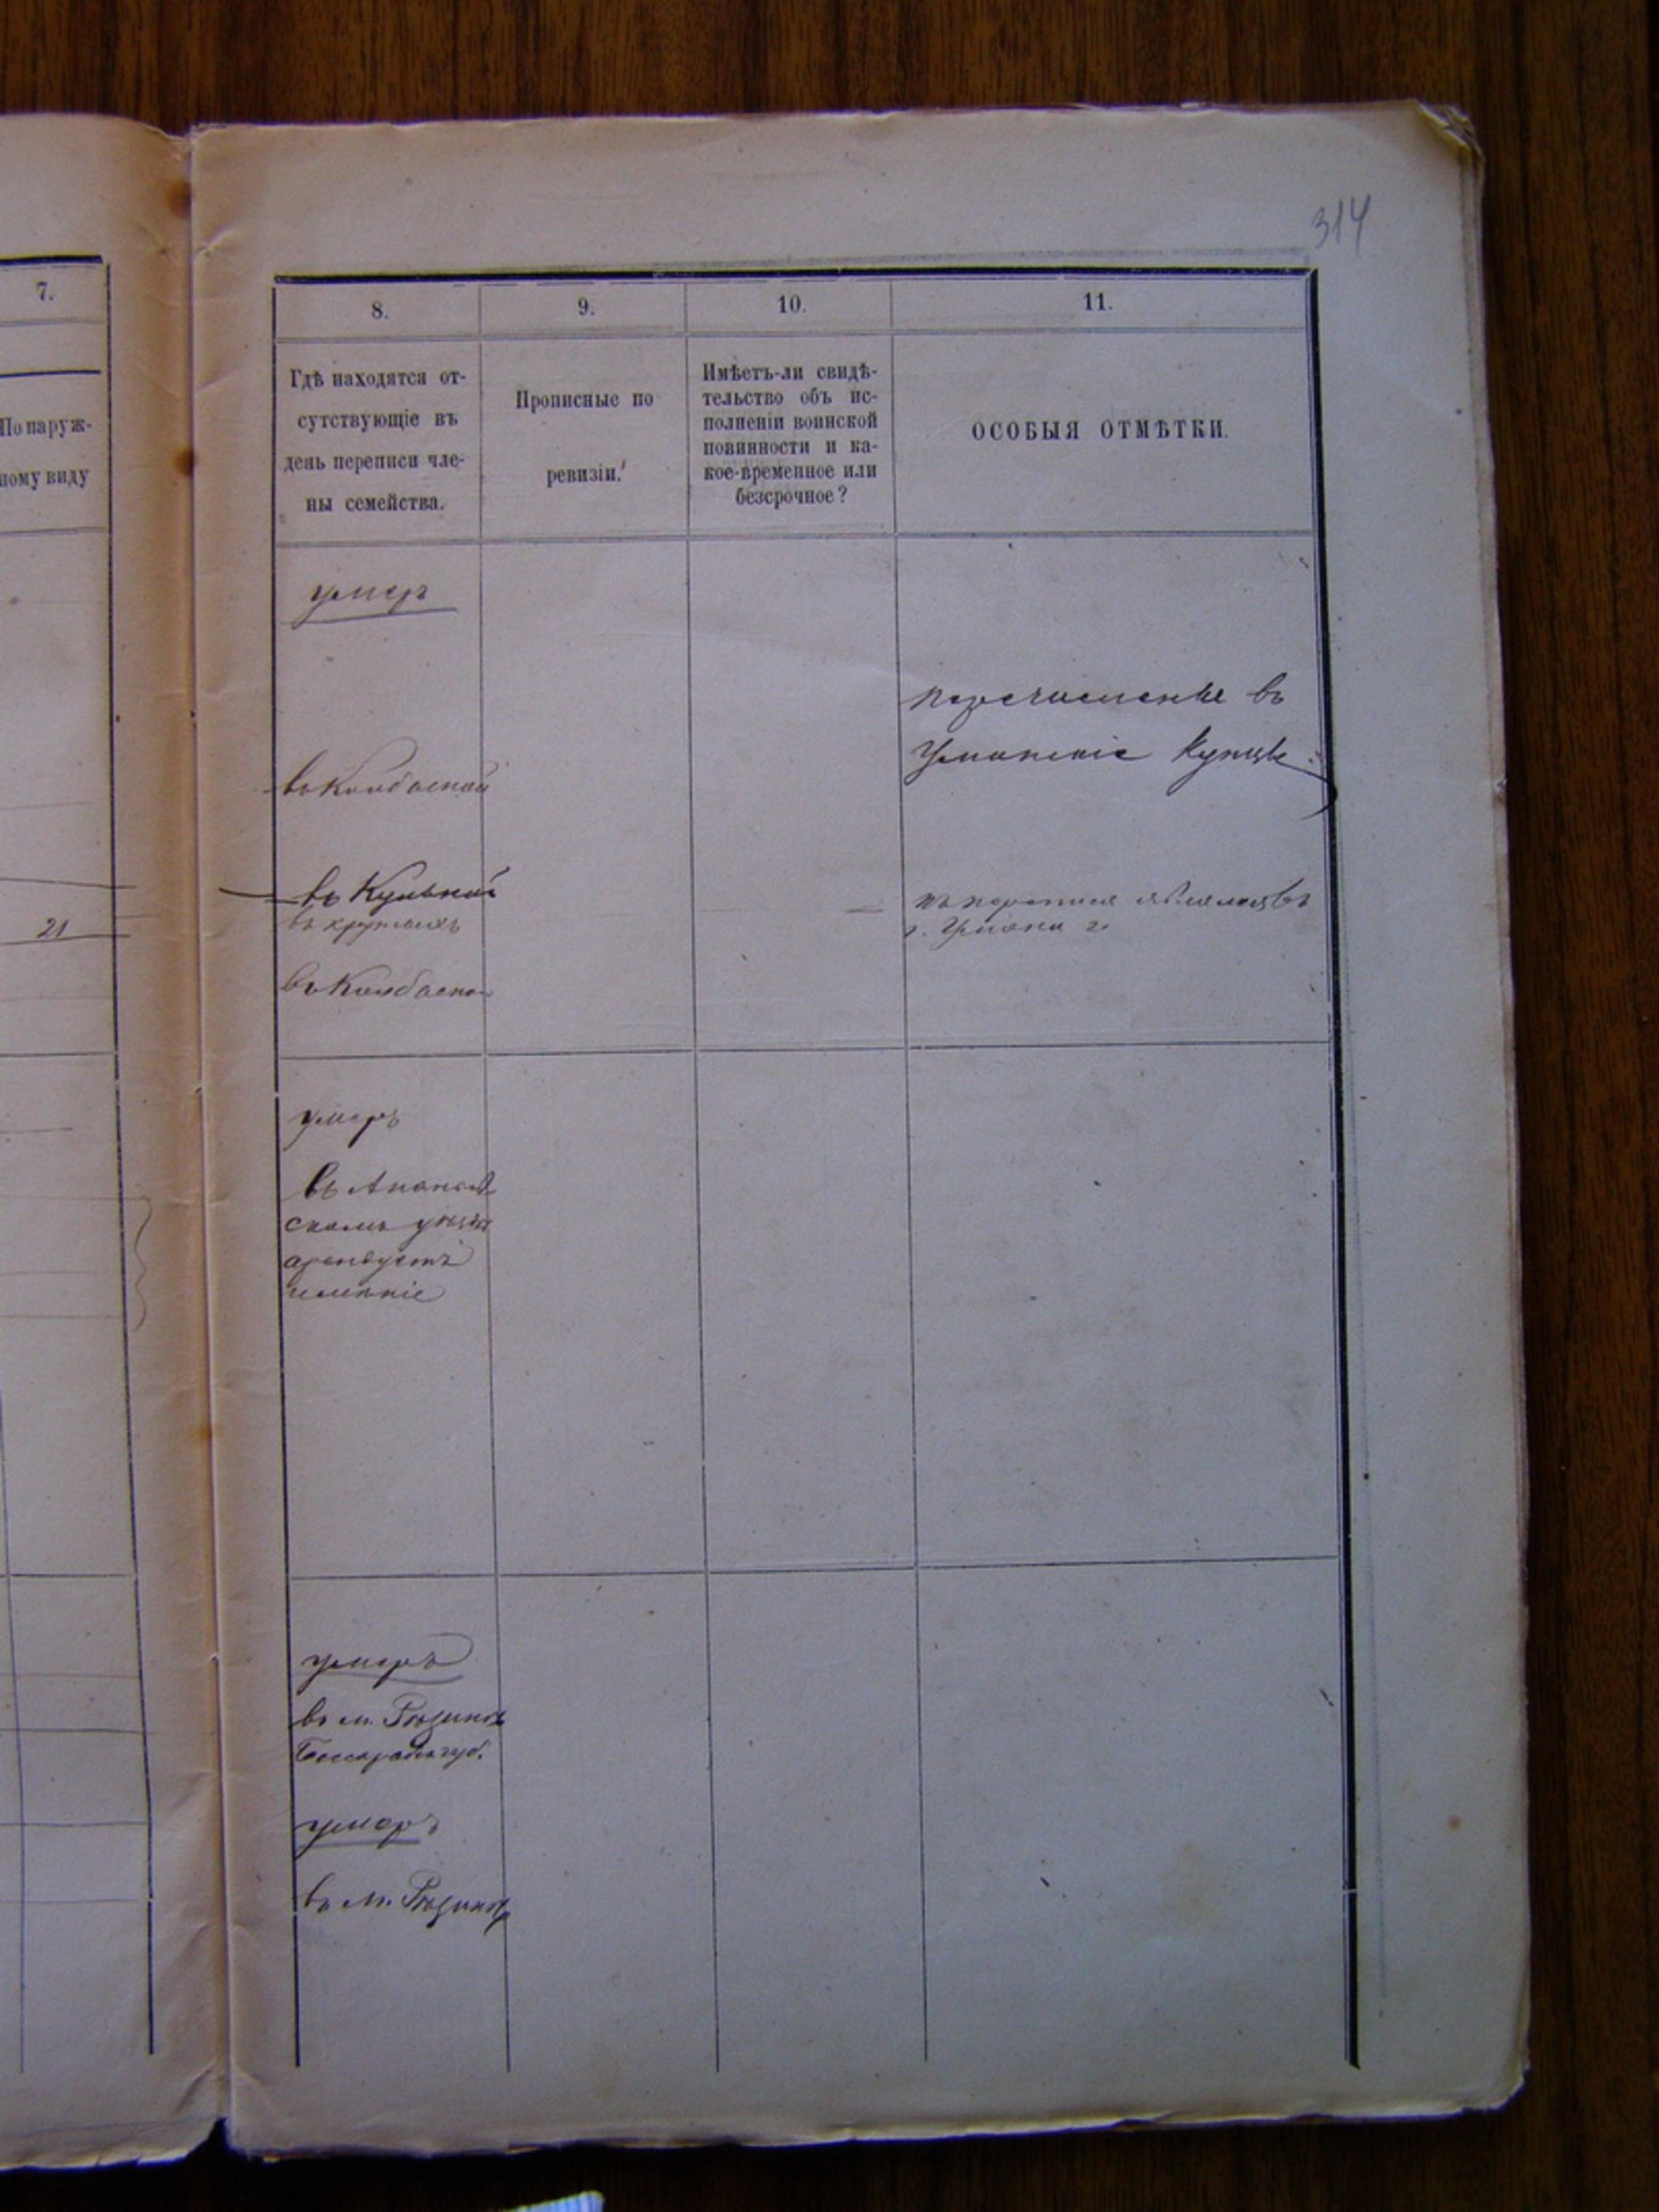 314
7.
По наруж-
ному виду
21
8.
9.
10.
11.
Гдѣ находятся от-
сутствующіе въ
день переписи чле-
ны семейства.
Прописные по
ревизіи.
Имѣетъ-ли свидѣ-
тельство объ ис-
полненіи воинской
повинности и ка-
кое-временное или
безсрочное?
ОСОБЫЯ ОТМѢТКИ.
умеръ
перечислены въ
Уманскіе Купцы
въ
въ
въ
г. Умани
въ
умеръ
въ Ананьев
скомъ уѣздѣ
арендуетъ
имѣніе
умеръ
въ м. Рѣзинѣ
Бессараб. губ.
умеръ
въ м. Рѣзинѣ